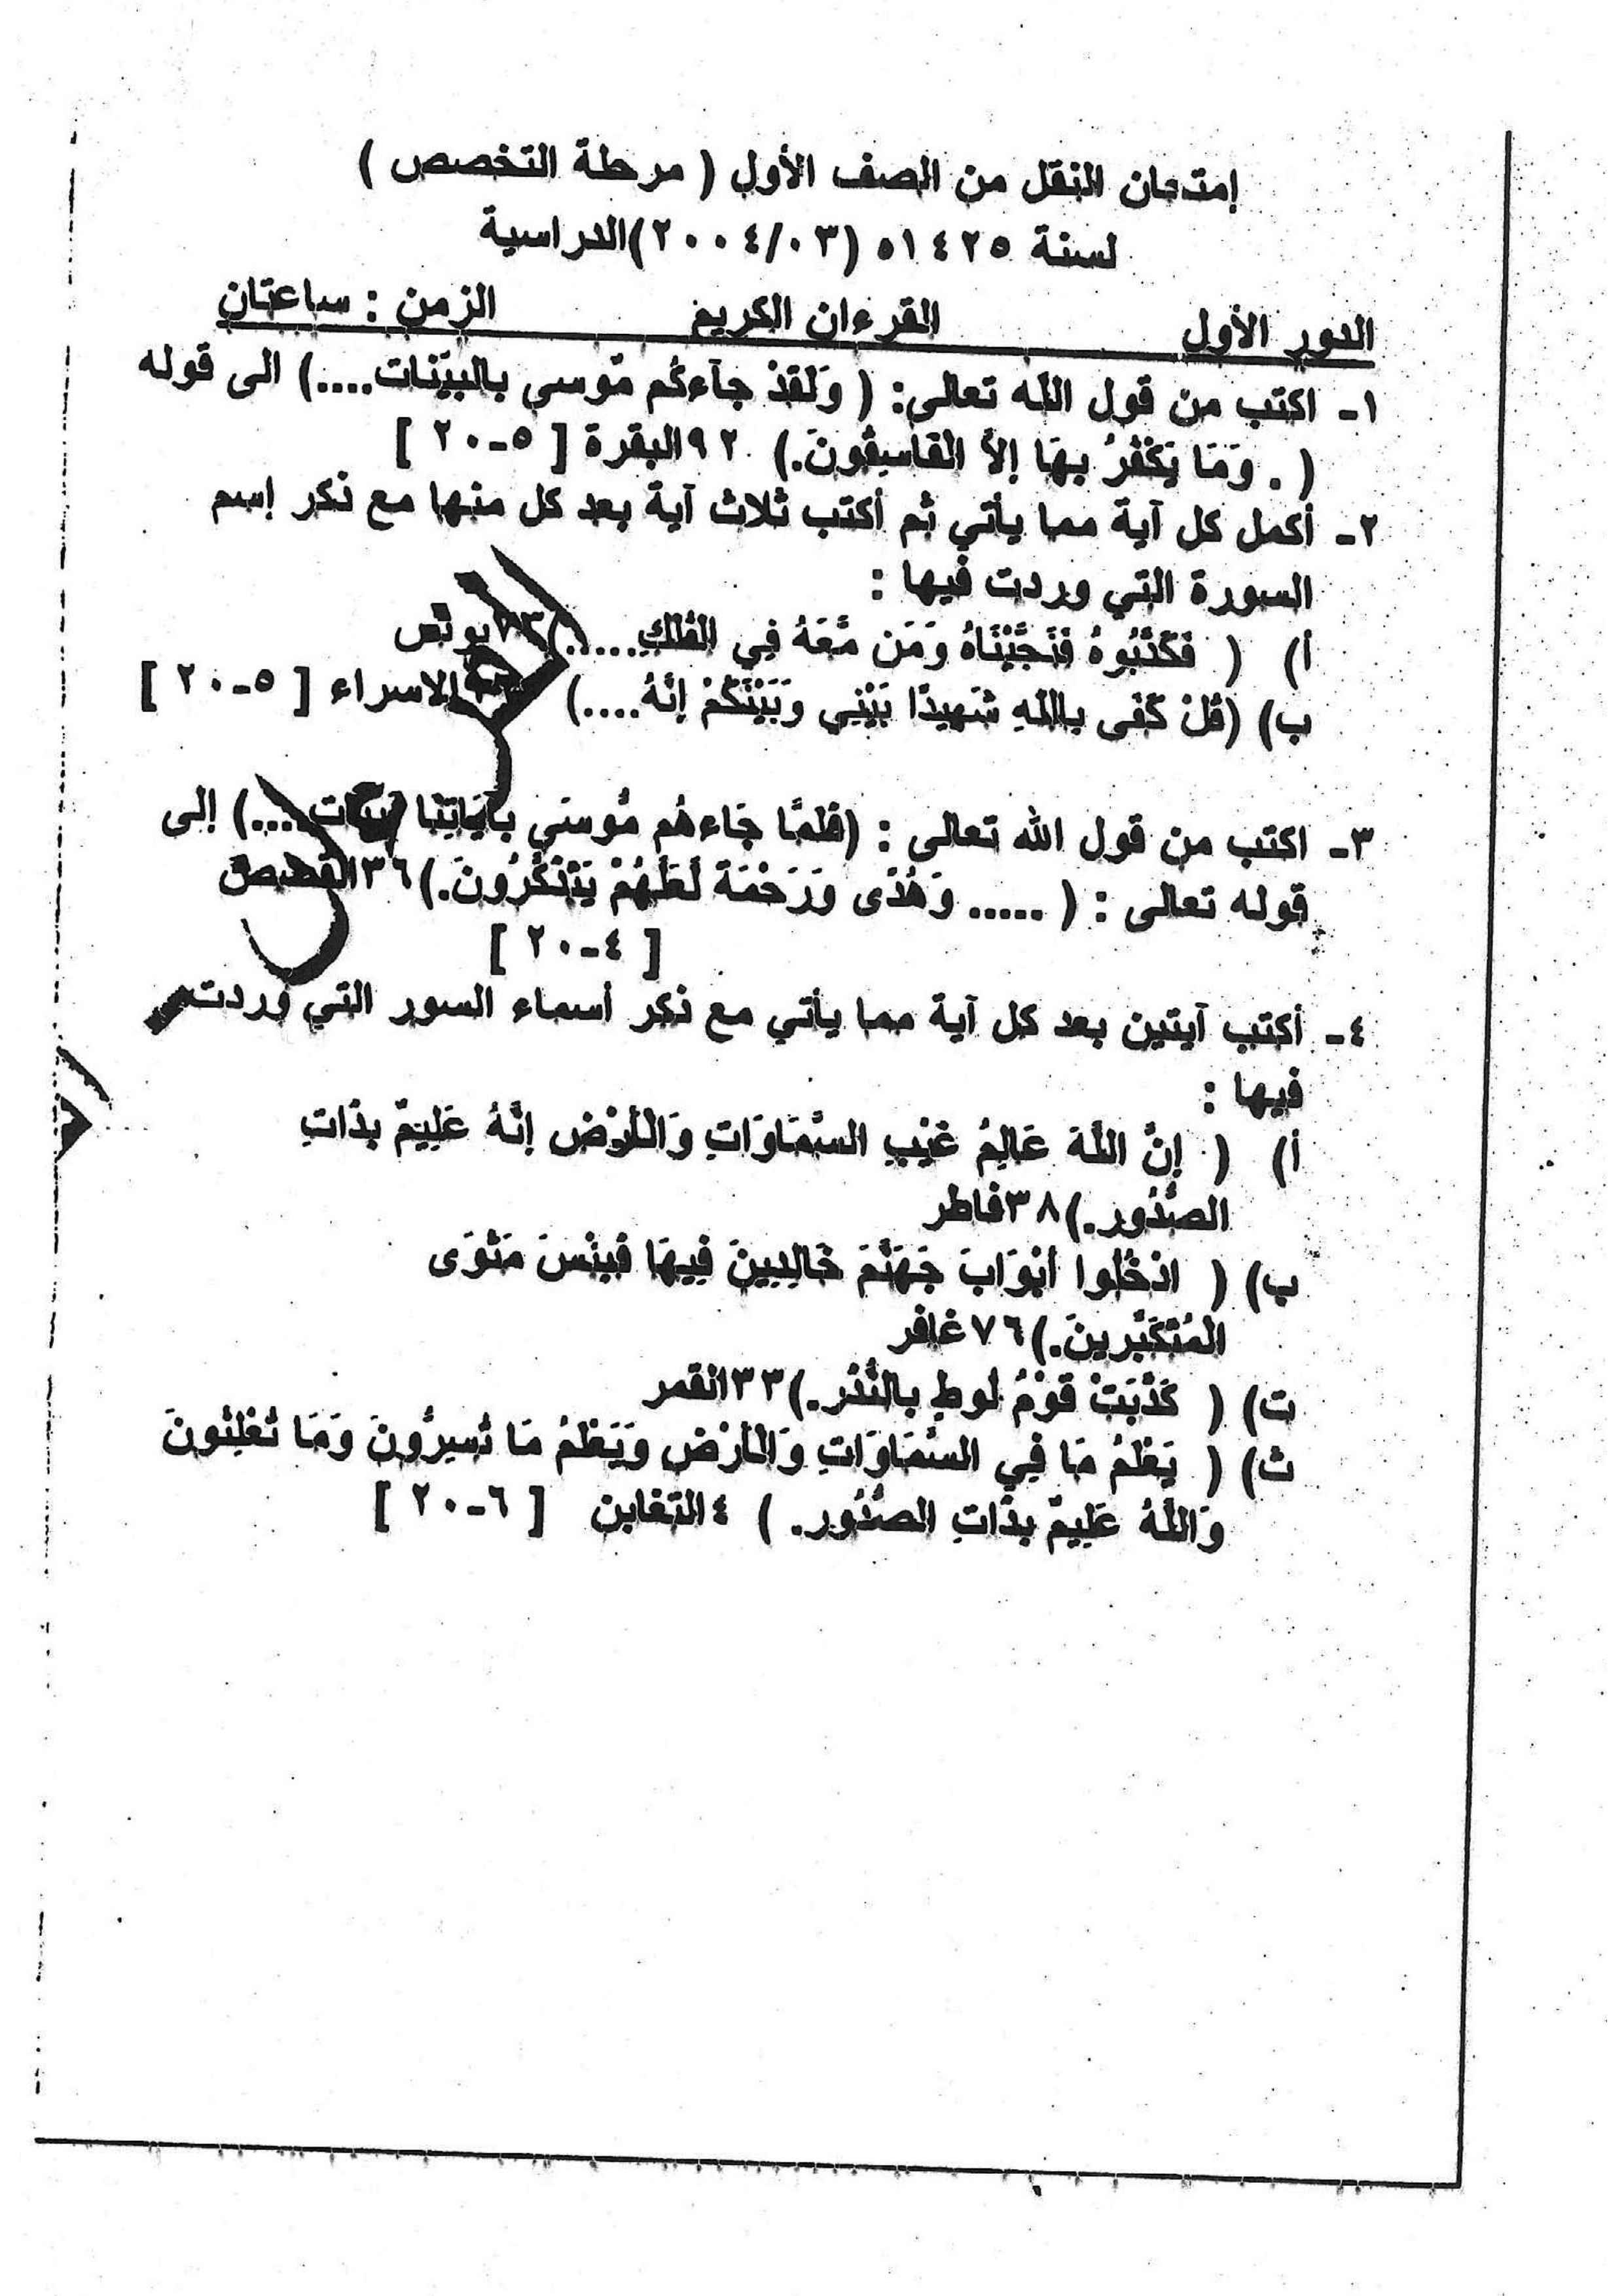 إمتحان النقل من الصف الأول ( مرحلة التخصص )
لسنة ١٤٢٥ه (٢٠٠٤/٠٣)الدراسية
الدور الأول القرءان الكريم الزمن : ساعتان
١- اكتب من قول الله تعالى: ( وَلَقَدْ جآءكُم مّوسى بالبيّنات....) الى قوله
( . وَمَا يَكْفُرُ بِهَا إلاَّ الفَاسِقُونَ.) ٩٢البقرة [ ٥-٢٠ ]
٢- أكمل كل آية مما يأتي ثم أكتب ثلاث آية بعد كل منها مع ذكر إسم
السورة التي وردت فيها :
أ) ( فَكَذَّبُوهُ فَنَجَّيْنَاهُ وَمَن مَّعَهُ فِي الفُلكِ.....) يونس
ب) (قُلْ كَفَى باللهِ شَهِيدًا بَيْنِي وَبَيْنَكُمْ إنَّهُ....) الاسراء [ ٥-٢٠ ]
٣- اكتب من قول الله تعالى : (فلمَّا جَاءهُم مُّوسَى بآيَاتِنَا ....) إلى
قوله تعالى : ( ..... وَهُدًى وَرَحْمَة لَعَلَهُمْ يَتَذَكَّرُونَ.)٣٦القصص
[ ٤-٢٠ ]
٤- أكتب آيتين بعد كل آية مما يأتي مع ذكر أسماء السور التي وردت
فيها :
أ) ( إنَّ اللهَ عَالِمُ غَيْبِ السَّمَاوَاتِ وَالأرْضِ إنَّهُ عَلِيمٌ بذاتِ
الصُّدُور.)٣٨فاطر
ب) ( ادْخُلُوا أبْوَابَ جَهَنَّمَ خَالِدِينَ فِيهَا فَبئْسَ مَثْوَى
المُتَكَبِّرينَ.)٧٦غافر
ت) ( كَذَّبَتْ قَوْمُ لُوطٍ بالنُّذُر.)٣٣القمر
ث) ( يَعْلَمُ مَا فِي السَّمَاوَاتِ وَالأرْض وَيَعْلَمُ مَا تُسِرُّونَ وَمَا تُعْلِنُونَ
وَاللهُ عَلِيمٌ بذاتِ الصُّدُور. ) ٤التغابن [ ٦-٢٠ ]